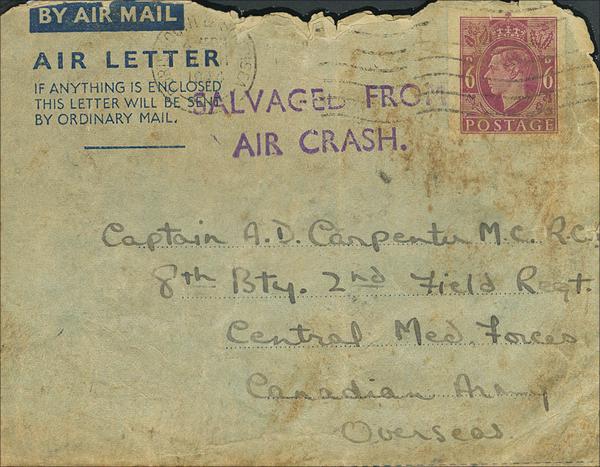 BY AIR MAIL
AIR LETTER
IF ANYTHING IS ENCLOSED
THIS LETTER WILL BE SENT
BY ORDINARY MAIL.
SALVAGED FROM
AIR CRASH.
6 D 6 D
POSTAGE
Captain A.D. Carpenter M.C. R.C.
8th Bty. 2nd Field Regt.
Central Med. Forces
Canadian Army
Overseas